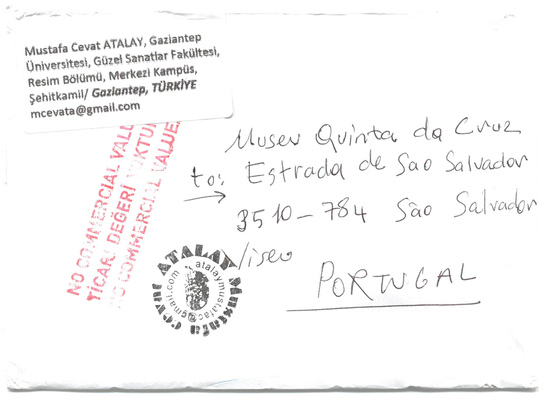 Mustafa Cevat ATALAY, Gaziantep
Üniversitesi, Güzel Sanatlar Fakültesi,
Resim Bölümü, Merkezi Kampüs,
Şehitkamil/ Gaziantep, TÜRKİYE
mcevata@gmail.com
NO COMMERCIAL VALU
TİCARİ DEĞERİ YOKTUR
NO COMMERCIAL VALUE
Museu Quinta da Cruz
to: Estrada de Sao Salvador
3510-784 São Salvador
Viseu
PORTUGAL
ATALAY Mustafa Cevat
atalaymustafac@gmail.com